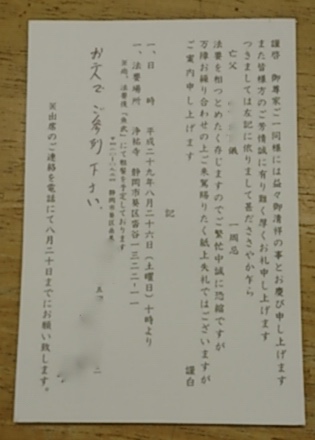 謹啓 御尊家ご一同様には益々御清祥の事とお慶び申し上げます
また皆様方のご芳情誠に有り難く厚くお礼申し上げます
つきましては左記に依りまして甚だささやかながら
亡父 儀 一周忌
法要を相つとめたく存じますのでご繁忙中誠に恐縮ですが
万障お繰り合わせの上ご来駕賜りたく紙上失礼ではございますが
ご案内申し上げます 謹白
記
一、日 時 平成二十九年八月二十六日（土曜日）十時より
一、法要場所 浄祐寺 静岡市葵区沓谷一三二二-一一
※尚、法要後「魚武」にて粗餐を予定しております
静岡市葵区
お二人で ご参列 下さい。
※出席のご連絡を電話にて八月二十日までにお願い致します。